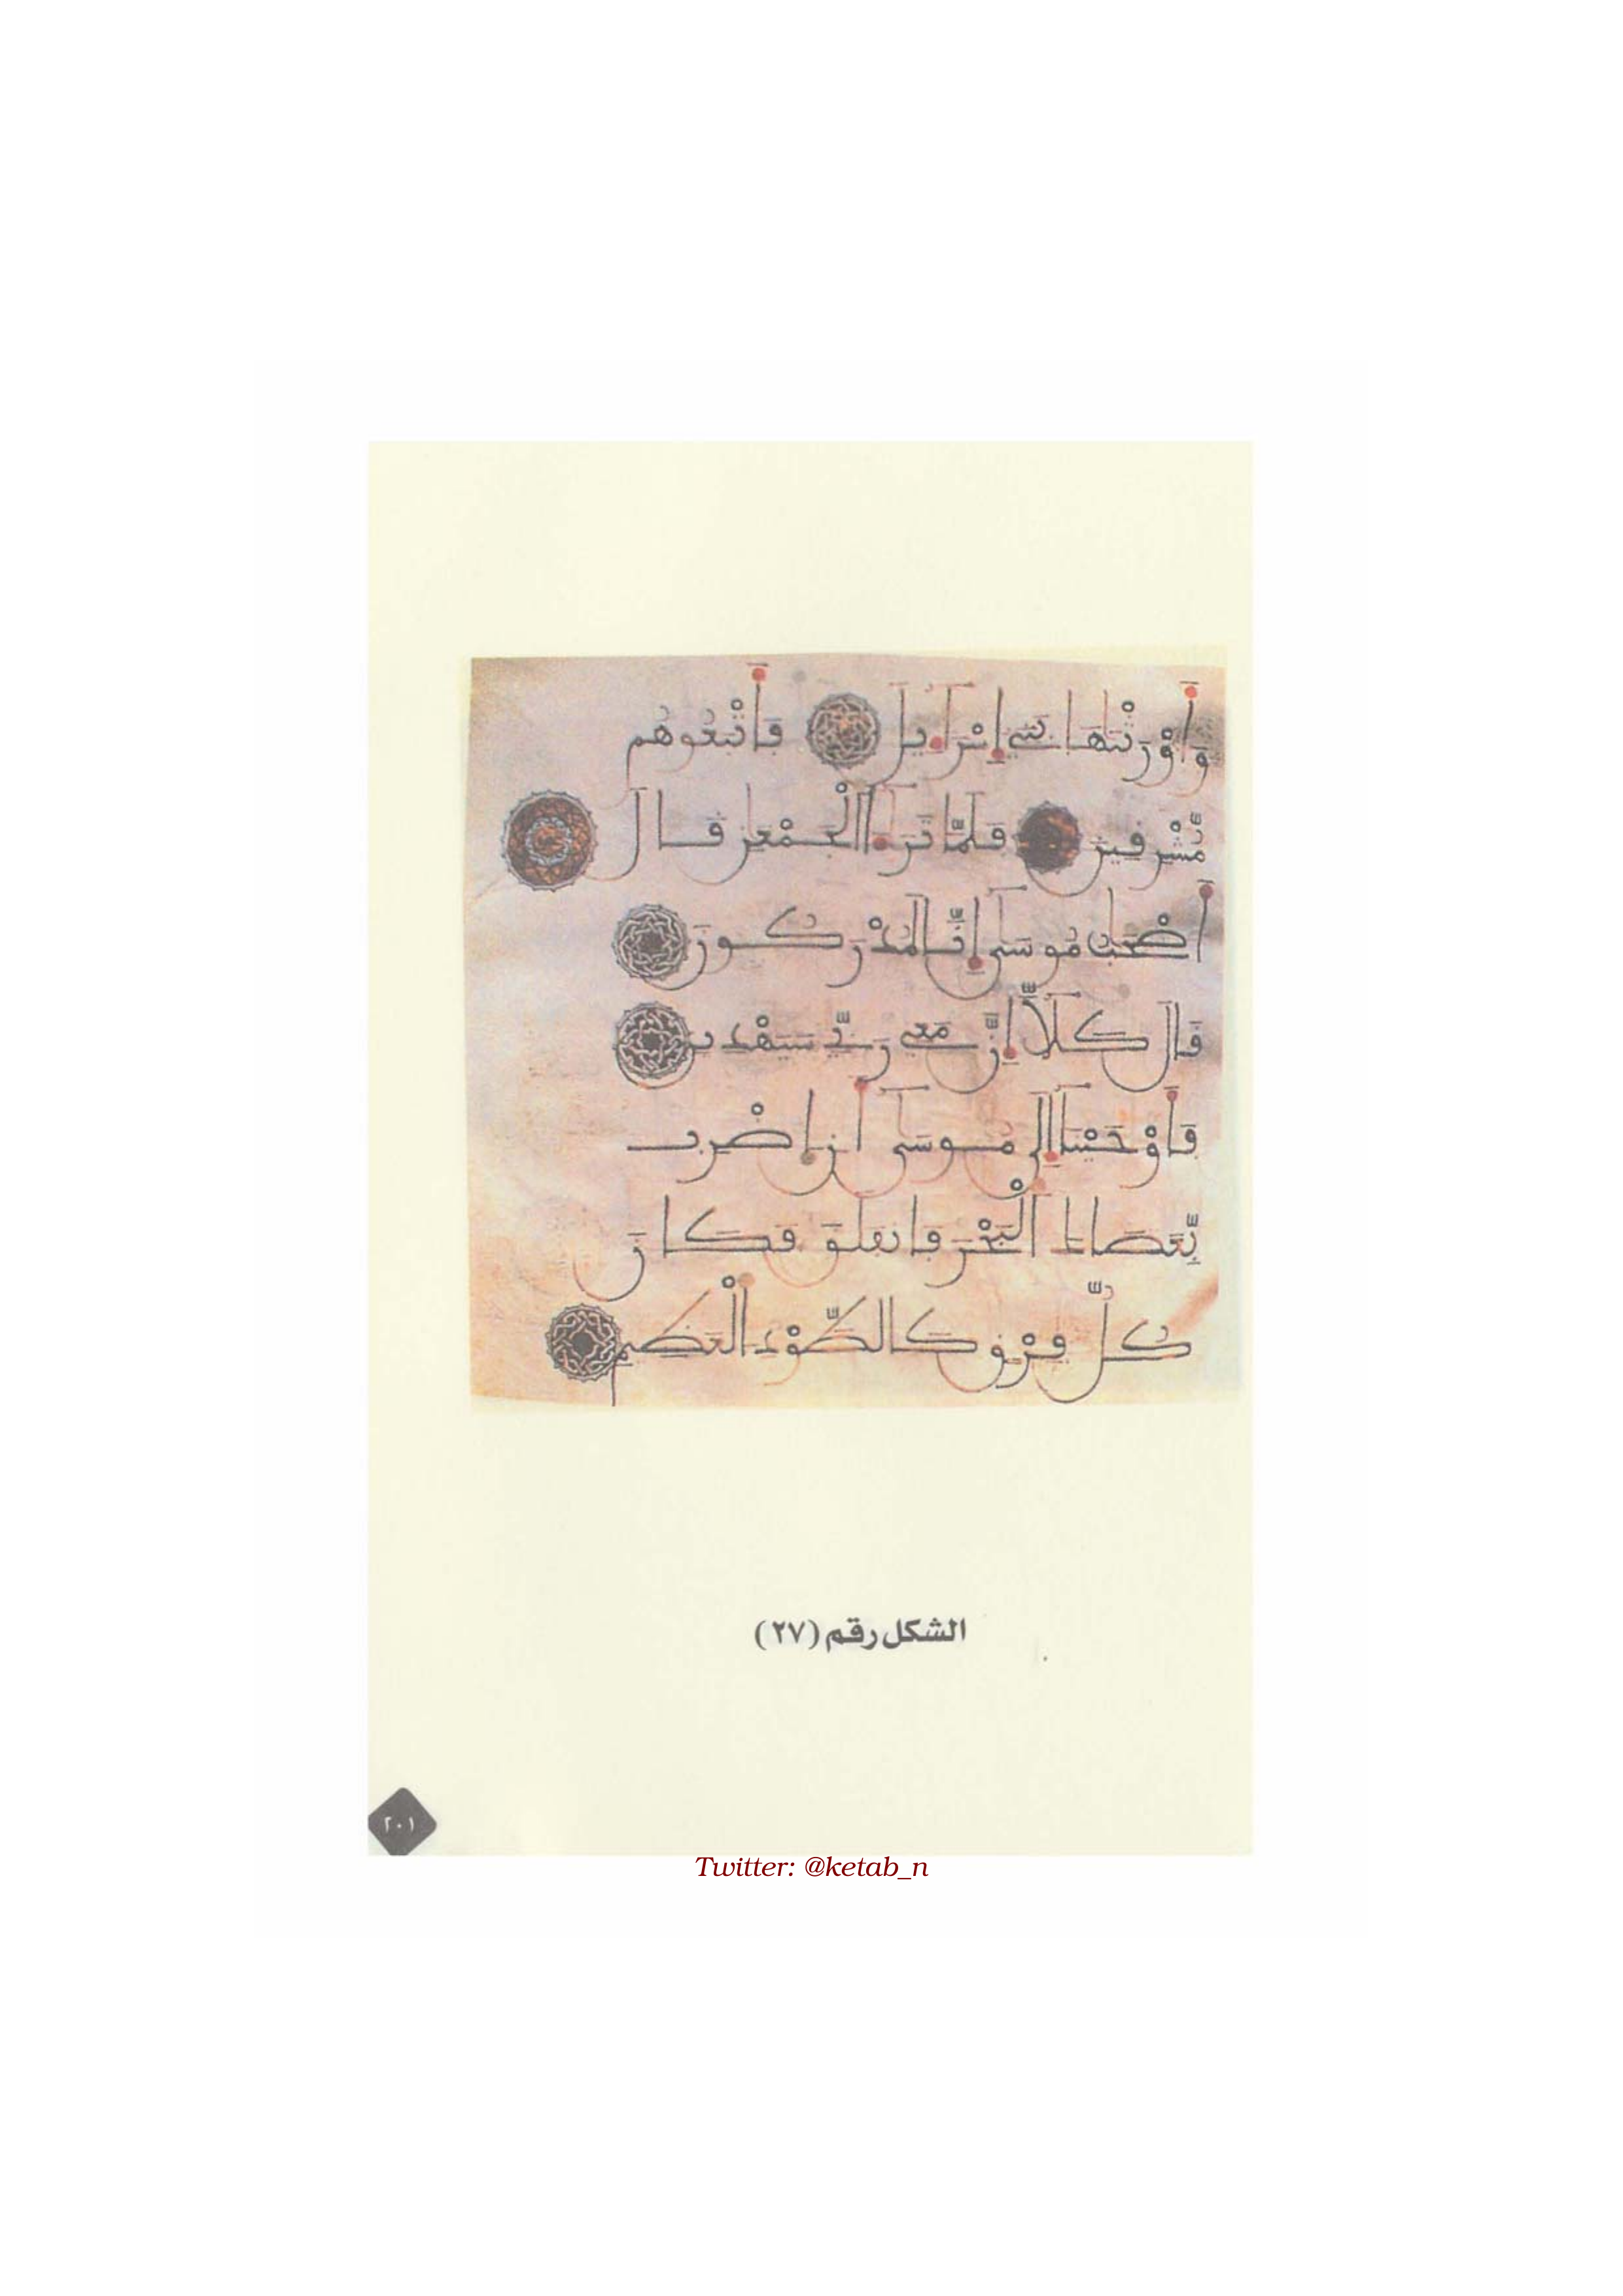 وَأَوْرَثْنَٰهَا بَنِےٓ إِسْرَآءِيلَ فَأَتْبَعُوهُم
مُّشْرِفِينَ فَلَمَّا تَرَٰٓءَا الْجَمْعَٰنِ قَالَ
أَصْحَٰبُ مُوسَىٰٓ إِنَّا لَمُدْرَكُونَ
قَالَ كَلَّآ إِنَّ مَعِے رَبِّے سَيَهْدِينِ
فَأَوْحَيْنَآ إِلَىٰ مُوسَىٰٓ أَنِ اِضْرِب
بِّعَصَاكَ الْبَحْرَ فَانفَلَقَ فَكَانَ
كُلُّ فِرْقٍ كَالطَّوْدِ الْعَظِيمِ
الشكل رقم (٢٧)
٢٠١
Twitter: @ketab_n